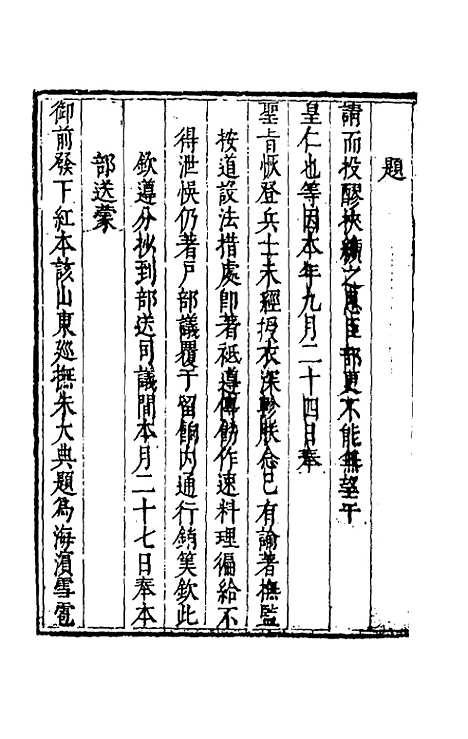 題
請而投醪挾纊之惠臣部更不能無望于
皇仁也等因本年九月二十四日奉
聖旨恢登兵士未經授衣深軫朕念已有諭著撫監
按道設法措處即著祗遵傳飭作速料理徧給不
得泄悞仍著戶部議覆于留餉內通行銷筭欽此
欽遵分抄到部送司議間本月二十七日奉本
部送蒙
御前發下紅本該山東廵撫朱大典題爲海濵雪雹